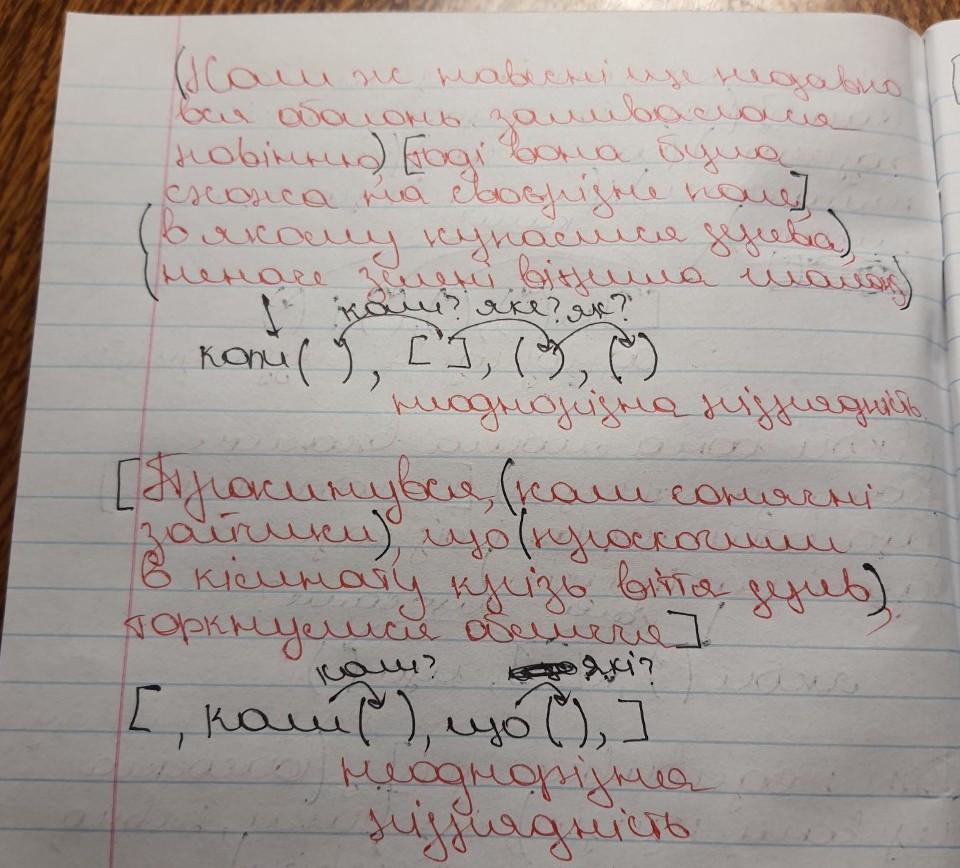 (Коли ж навесні ще недавно
вся оболонь заливалася
повінню) [тоді вона була
схожа на своєрідне поле]
(в якому купалися дерева)
(неначе зелені вітрила
коли? яке? як?
коли ( ), [ ], ( ), ( )
неоднорідна підрядність
[Прокинувся, (коли сонячні
зайчики), що (проскочили
в кімнату крізь віття дерев),
торкнулися обличчя]
коли? які?
[ , коли ( ), що ( ), ]
неоднорідна
підрядність